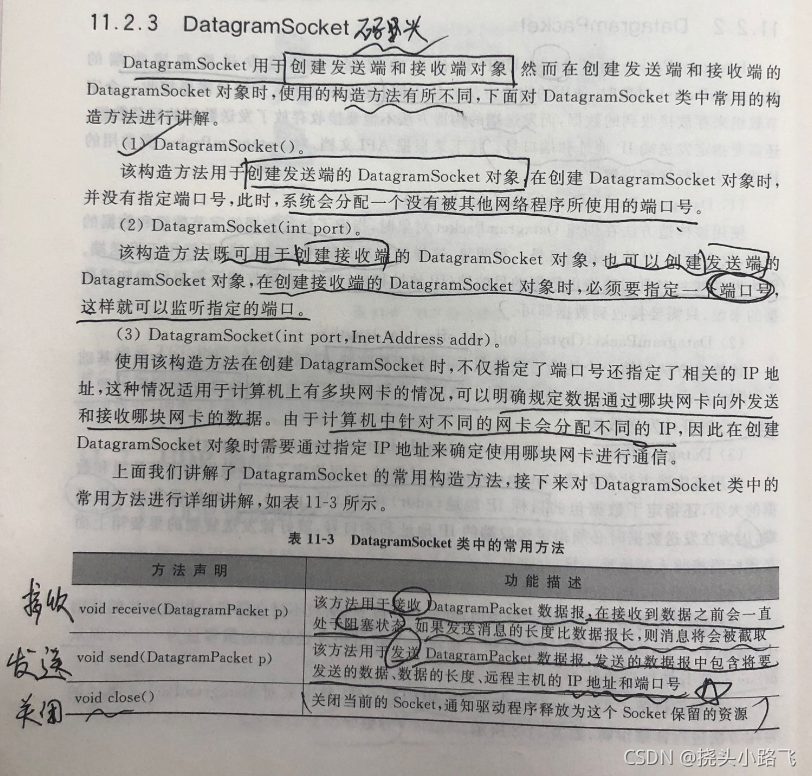 11.2.3 DatagramSocket
DatagramSocket 用于创建发送端和接收端对象,然而在创建发送端和接收端的
DatagramSocket 对象时,使用的构造方法有所不同,下面对 DatagramSocket 类中常用的构
造方法进行讲解。
(1) DatagramSocket()。
该构造方法用于创建发送端的 DatagramSocket 对象,在创建 DatagramSocket 对象时,
并没有指定端口号,此时,系统会分配一个没有被其他网络程序所使用的端口号。
(2) DatagramSocket(int port)。
该构造方法既可用于创建接收端的 DatagramSocket 对象,也可以创建发送端的
DatagramSocket 对象,在创建接收端的 DatagramSocket 对象时,必须要指定一个端口号,
这样就可以监听指定的端口。
(3) DatagramSocket(int port,InetAddress addr)。
使用该构造方法在创建 DatagramSocket 时,不仅指定了端口号还指定了相关的 IP 地
址,这种情况适用于计算机上有多块网卡的情况,可以明确规定数据通过哪块网卡向外发送
和接收哪块网卡的数据。由于计算机中针对不同的网卡会分配不同的 IP,因此在创建
DatagramSocket 对象时需要通过指定 IP 地址来确定使用哪块网卡进行通信。
上面我们讲解了 DatagramSocket 的常用构造方法,接下来对 DatagramSocket 类中的
常用方法进行详细讲解,如表 11-3 所示。
表 11-3 DatagramSocket 类中的常用方法
方法声明 功能描述
接收 void receive(DatagramPacket p) 该方法用于接收 DatagramPacket 数据报,在接收到数据之前会一直
处于阻塞状态,如果发送消息的长度比数据报长,则消息将会被截取
发送 void send(DatagramPacket p) 该方法用于发送 DatagramPacket 数据报,发送的数据报中包含将要
发送的数据、数据的长度、远程主机的 IP 地址和端口号
关闭 void close() 关闭当前的 Socket,通知驱动程序释放为这个 Socket 保留的资源
CSDN @挠头小路飞